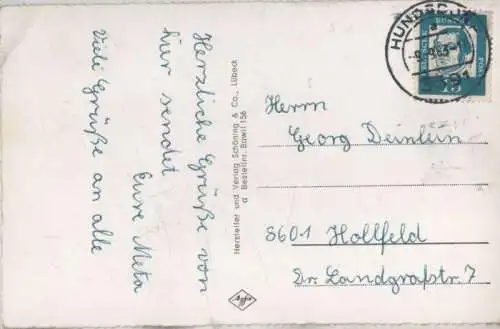 Herzliche Grüße von
hier sendet
Eure Meta
Viele Grüße an alle
Hersteller und Verlag Schöning & Co., Lübeck
Bestellnr. Bawil 156
Herrn
Georg Deinlein
8601 Hollfeld
Dr. Landgrafstr. 7
Agfa
DEUTSCHE
15